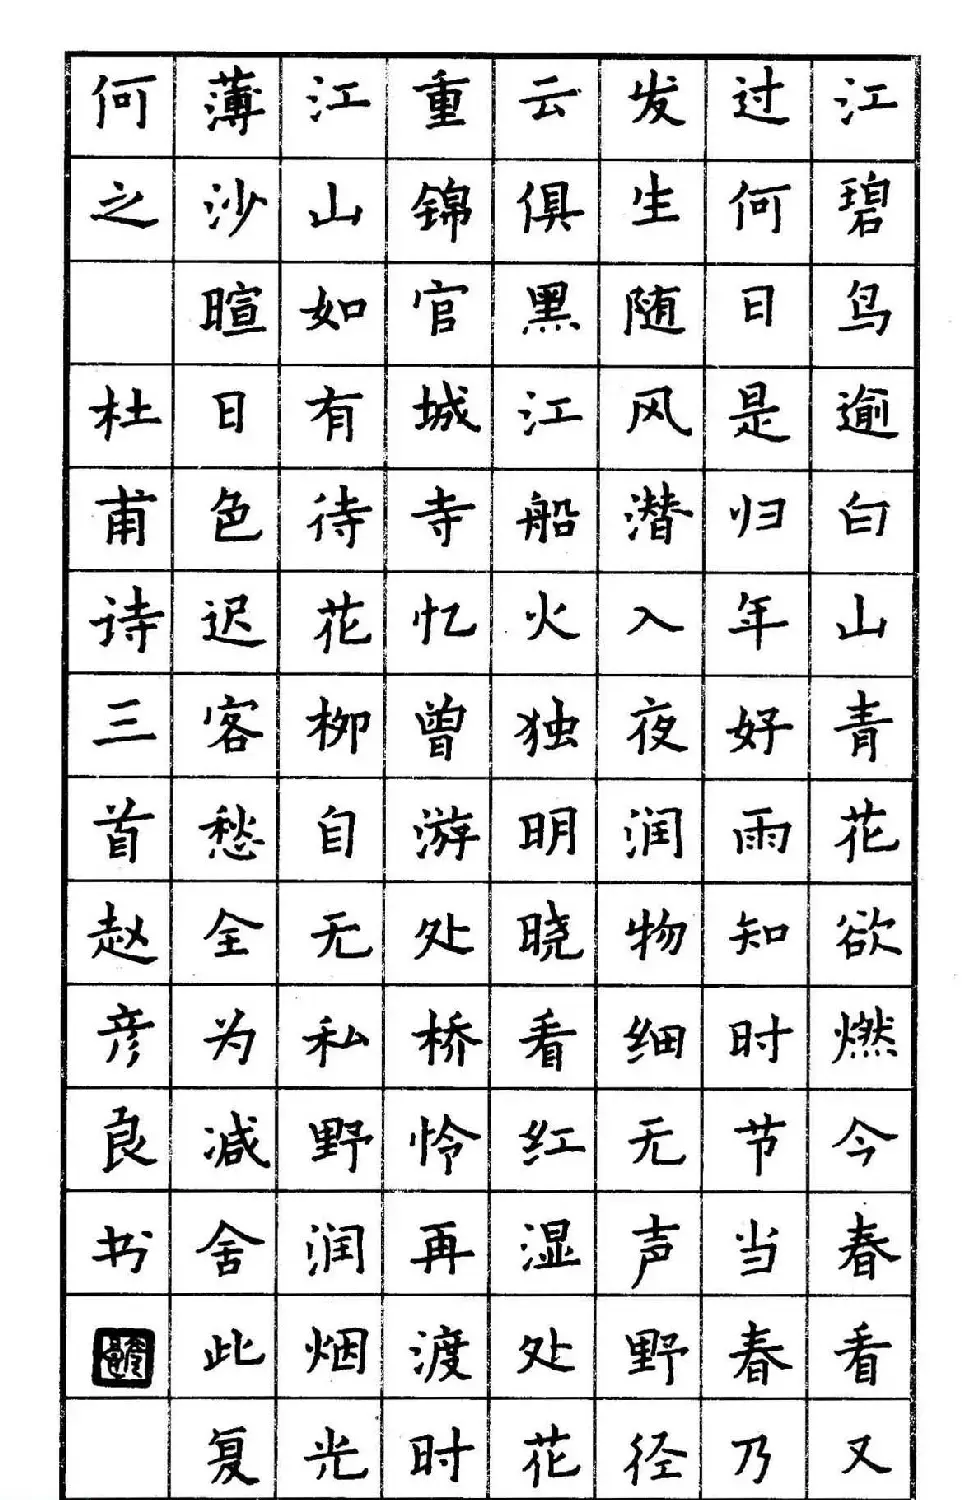 江碧鸟逾白山青花欲燃今春看又
过何日是归年好雨知时节当春乃
发生随风潜入夜润物细无声野径
云俱黑江船火独明晓看红湿处花
重锦官城寺忆曾游处桥怜再渡时
江山如有待花柳自无私野润烟光
薄沙暄日色迟客愁全为减舍此复
何之 杜甫诗三首赵彦良书